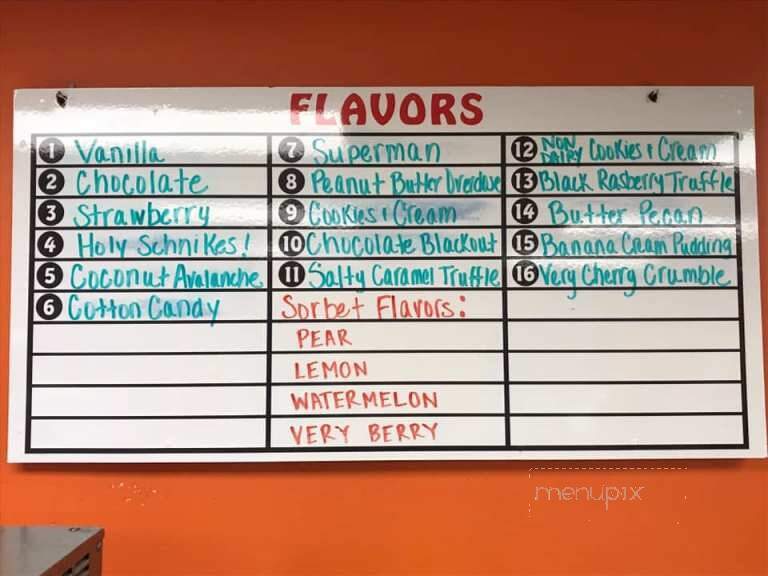 FLAVORS
1 Vanilla
2 Chocolate
3 Strawberry
4 Holy Schnikes!
5 Coconut Avalanche
6 Cotton Candy
7 Superman
8 Peanut Butter Overdose
9 Cookies & Cream
10 Chocolate Blackout
11 Salty Caramel Truffle
Sorbet Flavors:
PEAR
LEMON
WATERMELON
VERY BERRY
12 NON DAIRY Cookies & Cream
13 Black Rasberry Truffle
14 Butter Pecan
15 Banana Cream Pudding
16 Very Cherry Crumble
menupix